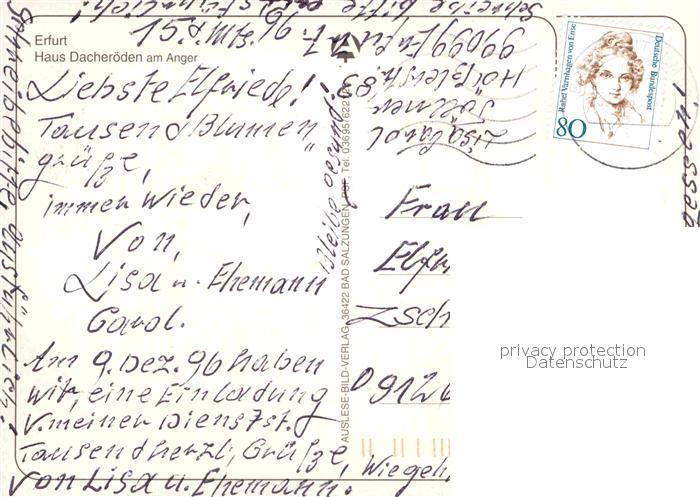 Erfurt
Haus Dacheröden am Anger
Liebste Elfriede!
Tausend Blumen
grüße,
immer wieder,
Von,
Lisa u. Ehemann
Carol.
Am 9. Dez. 96 haben
wir, eine Einladung
v. meiner Dienstst.
Tausend herzl. Grüße,
von Lisa u. Ehemann.
Schreibe bitte, ausführlich!
Bleibe gesund!
AUSLESE-BILD-VERLAG, 36422 BAD SALZUNGEN
Tel. 03695/622
99099 Erfurt
Schreibe bitte
Frau
Elfr
Zsch
0912
Rahel Varnhagen von Ense
Deutsche Bundespost
80
privacy protection
Datenschutz